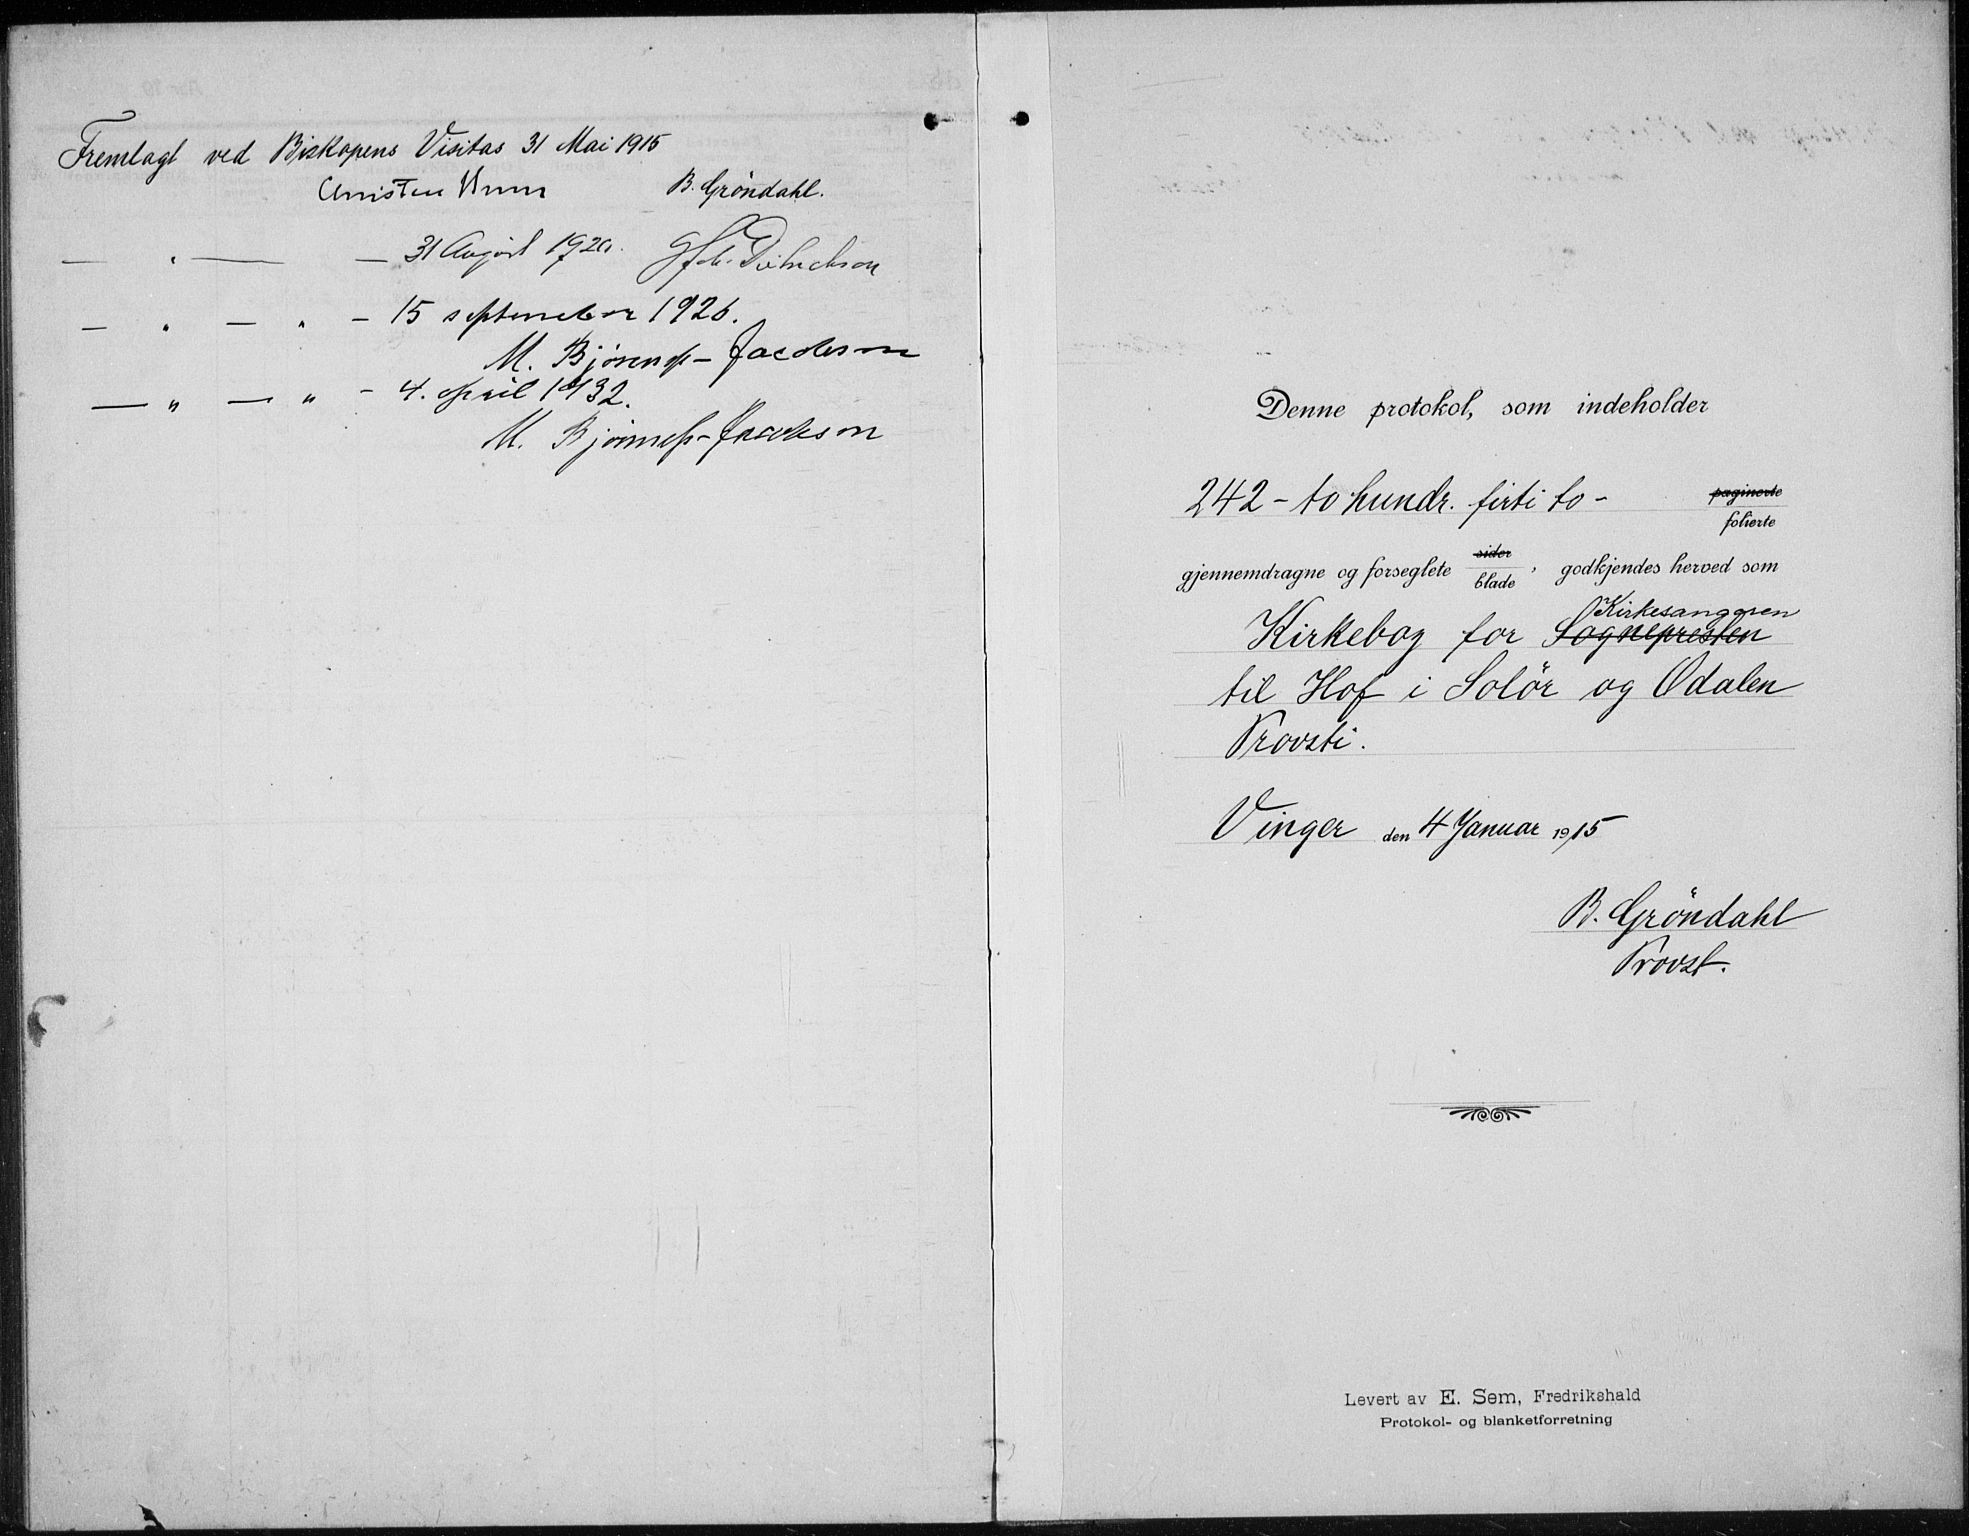 Fremlagt ved Biskopens Visitas 31 Mai 1915
Christen Brun B. Gröndahl.
— " — — 31 August 1920.
— " — " — 15 september 1926.
M. Bjønness-Jacobsen
— " — " — 4. april 1932.
M. Bjønness-Jacobsen
Denne protokol, som indeholder
242 - to hundr. firti to - paginerte
folierte
gjennemdragne og forseglete sider
blade , godkjendes herved som
Kirkesangeren
Kirkebog for Sognepresten
til Hof i Solör og Odalen
Provsti.
Vinger den 4 Januar 1915
B. Gröndahl
Provst.
Levert av E. Sem, Fredrikshald
Protokol- og blanketforretning